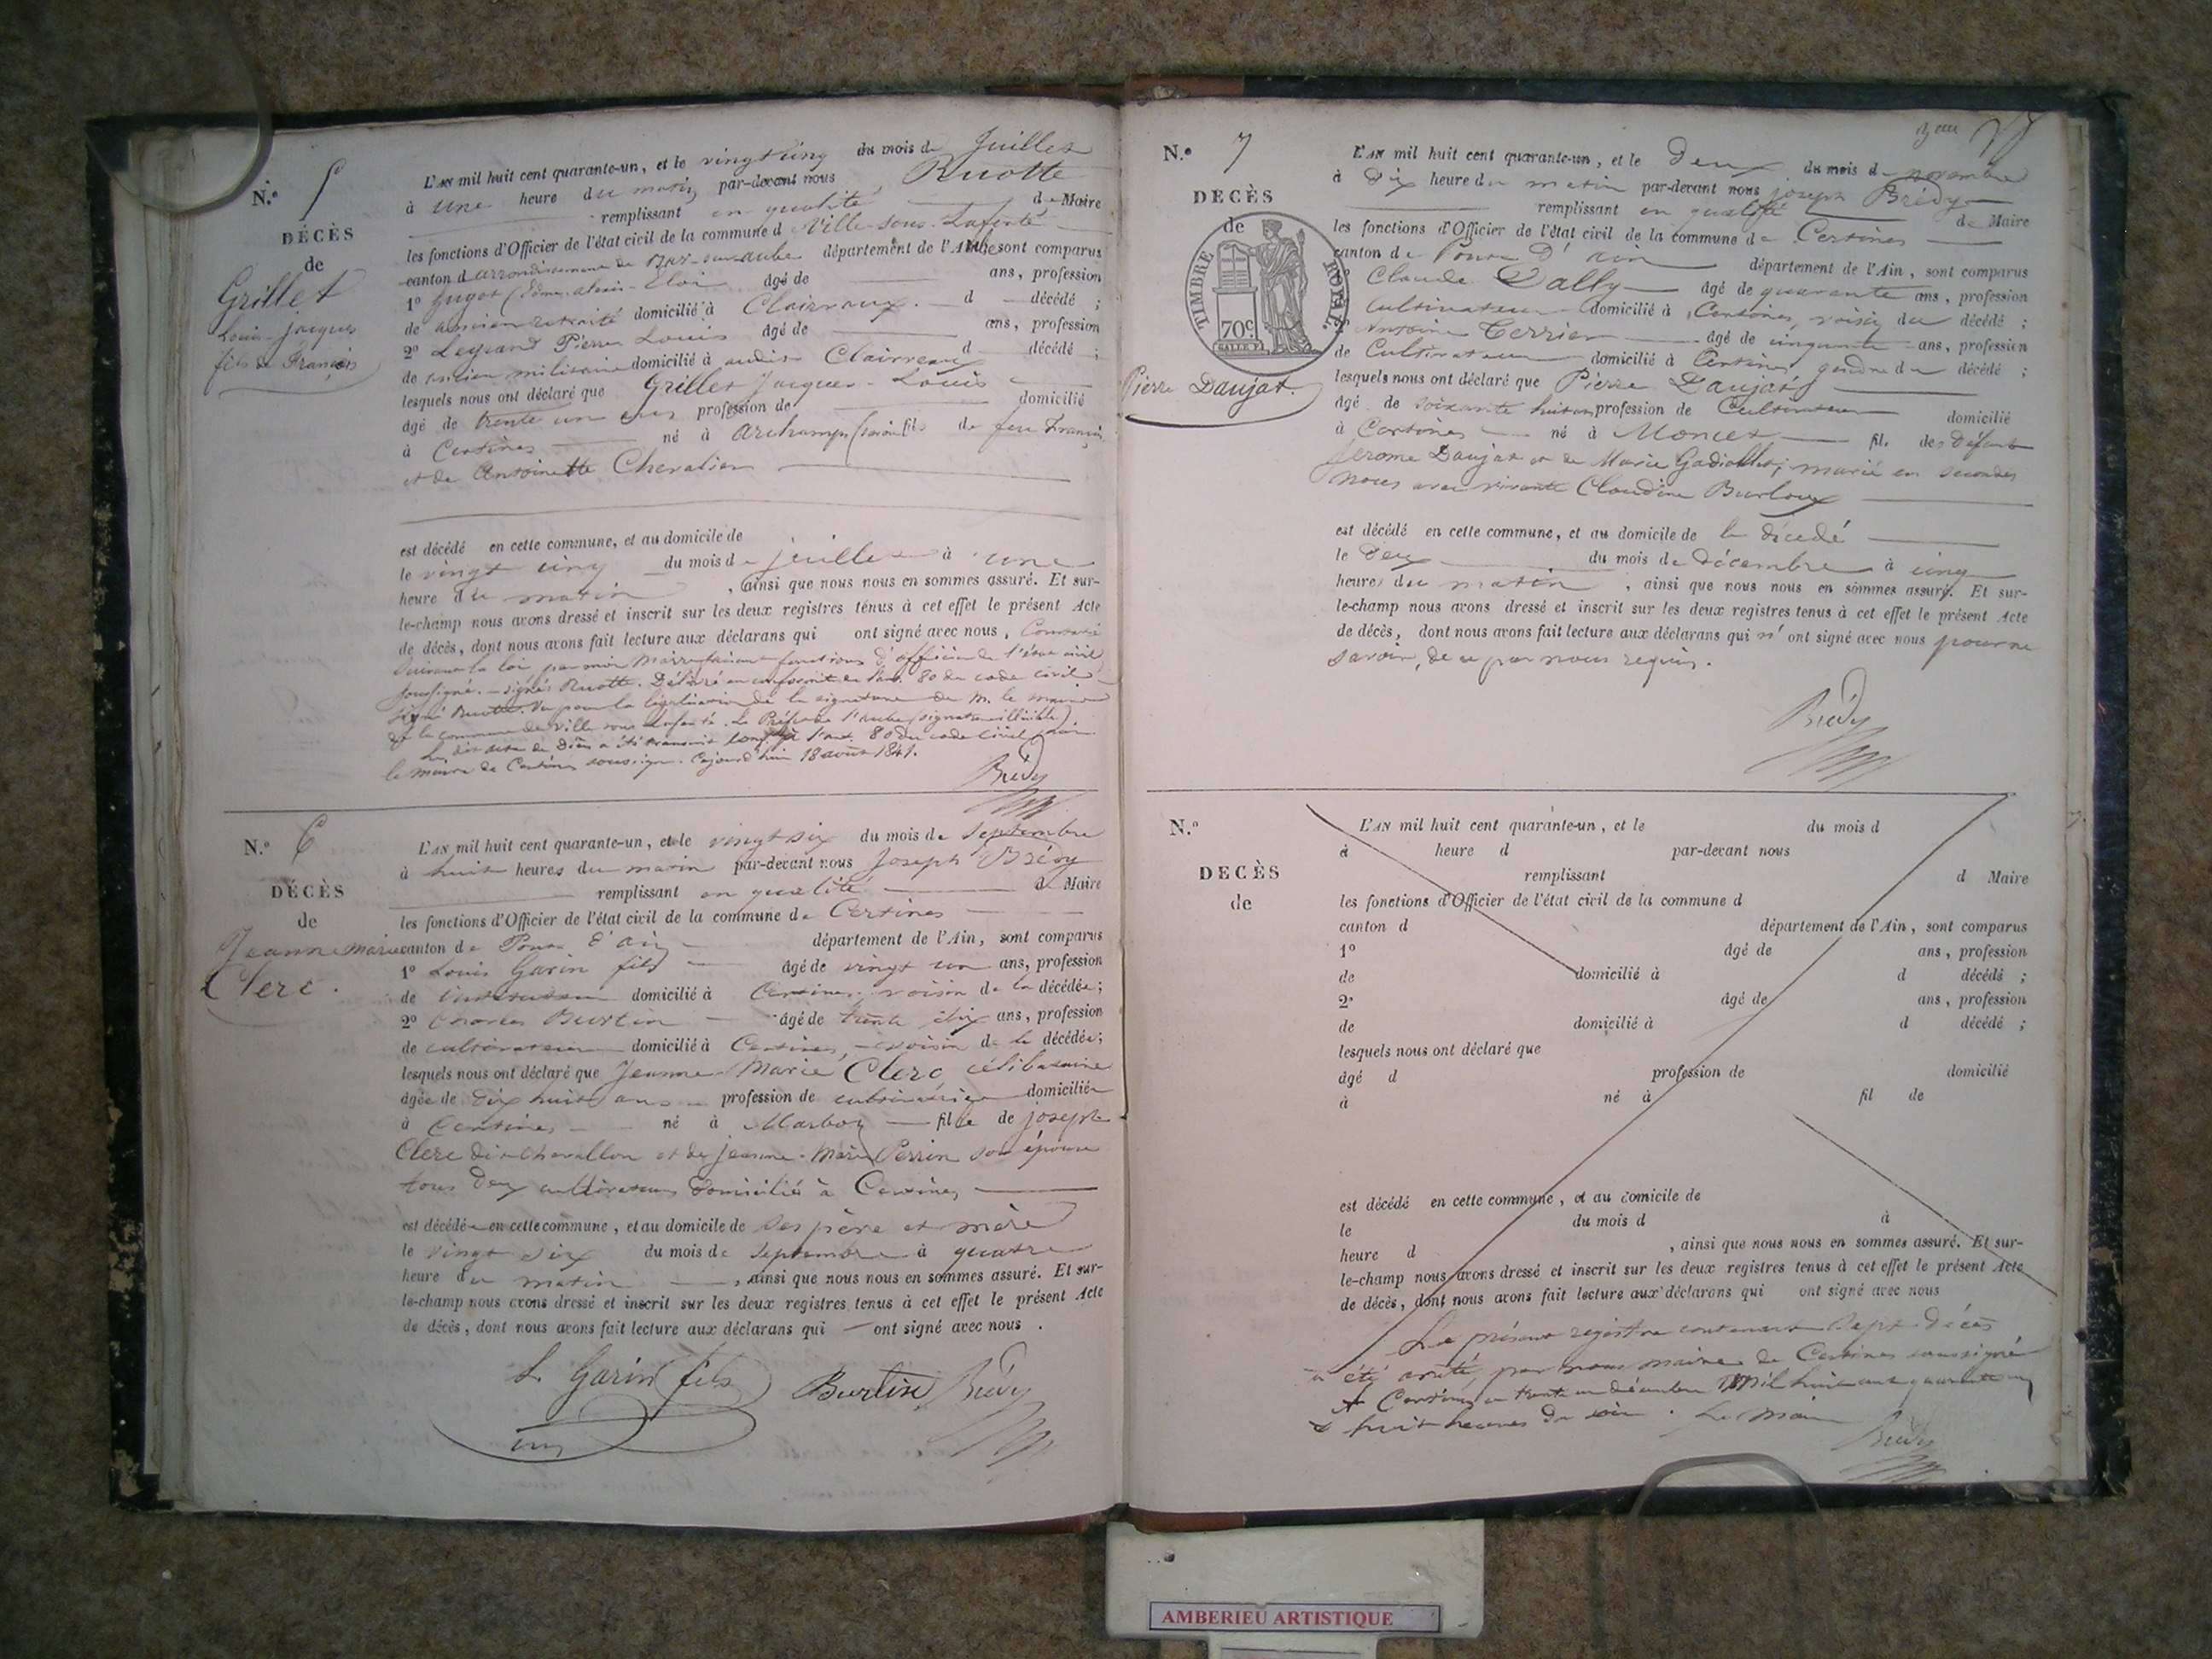 N.º 5
DÉCÈS
de
Grillet
Louis-Jacques
fils de François
L'AN mil huit cent quarante-un, et le vingt cinq du mois de Juillet
à une heure du matin par-devant nous Ruotte
remplissant en qualité de Maire
les fonctions d'Officier de l'état civil de la commune d Ville-sous-Laferté
canton d arrondissement de Bar-sur-aube département de l'Aube sont comparus
1º âgé de ans, profession
de ancien retraité domicilié à Clairvaux d décédé ;
2º Legrand Pierre Louis âgé de ans, profession
de ancien militaire domicilié à audit Clairvaux d décédé ;
lesquels nous ont déclaré que Grillet Jacques-Louis
âgé de trente un ans profession de domicilié
à Certines né à archamp (savoie) fils de feu François
et de Antoinette Chevalier
est décédé en cette commune, et au domicile de
le vingt cinq du mois de juillet à une
heure du matin , ainsi que nous nous en sommes assuré. Et sur-
le-champ nous avons dressé et inscrit sur les deux registres tenus à cet effet le présent Acte
de décès, dont nous avons fait lecture aux déclarans qui ont signé avec nous, Constaté
suivant la loi par moi Maire faisant fonctions d'officier de l'état civil
soussigné. - signé Ruotte. Délivré en conformité de l'art. 80 du code civil
signé Ruotte. Vu pour la légalisation de la signature de M. le maire
de la commune de Ville sous Laferté. Le Préfet de l'aube (signature illisible).
80 du code civil
le maire de Certines soussigné. Cejourd'hui 18 août 1841.
Brédy
N.º 6
DÉCÈS
de
Jeanne marie
Clerc.
L'AN mil huit cent quarante-un, et le vingt six du mois de Septembre
à huit heures du matin par-devant nous Joseph Brédy
remplissant en qualité de Maire
les fonctions d'Officier de l'état civil de la commune de Certines
canton de Pont d'ain département de l'Ain, sont comparus
1º Louis Garin fils âgé de vingt un ans, profession
de instituteur domicilié à Certines, voisin de la décédée ;
2º Charles Burtin âgé de trente six ans, profession
de cultivateur domicilié à Certines, voisin de la décédée ;
lesquels nous ont déclaré que Jeanne Marie Clerc célibataire
âgée de dix huit ans profession de cultivatrice domiciliée
à Certines né à Marboz fille de joseph
Clerc dit Chevallon et de jeanne-Marie Perrin son épouse
tous deux cultivateurs domiciliés à Certines
est décédée en cette commune, et au domicile de ses père et mère
le vingt six du mois de septembre à quatre
heure du matin , ainsi que nous nous en sommes assuré. Et sur-
le-champ nous avons dressé et inscrit sur les deux registres tenus à cet effet le présent Acte
de décès, dont nous avons fait lecture aux déclarans qui ont signé avec nous .
L Garin fils Burtin Brédy
N.º 7
DÉCÈS
de
TIMBRE ROYAL
70c
Pierre Daujat.
L'AN mil huit cent quarante-un, et le Deux du mois de novembre
à Dix heure du matin par-devant nous joseph Brédy
remplissant en qualité de Maire
les fonctions d'Officier de l'état civil de la commune de Certines
canton de Pont D'ain département de l'Ain, sont comparus
Claude Dally âgé de quarante ans, profession
Cultivateur domicilié à Certines, voisin du décédé ;
antoine Terrier âgé de cinquante ans, profession
de Cultivateur domicilié à Certines gendre du décédé ;
lesquels nous ont déclaré que Pierre Daujat
âgé de soixante huit ans profession de Cultivateur domicilié
à Certines né à Moncet fils des défunts
Jerome Daujat et de Marie marié en secondes
noces avec vivante Claudine Burloux
est décédé en cette commune, et au domicile de le décédé
le Deux du mois de décembre à cinq
heures du matin , ainsi que nous nous en sommes assuré. Et sur-
le-champ nous avons dressé et inscrit sur les deux registres tenus à cet effet le présent Acte
de décès, dont nous avons fait lecture aux déclarans qui n'ont signé avec nous pour ne
savoir, de ce par nous requis.
Brédy
N.º
DECÈS
de
L'AN mil huit cent quarante-un, et le du mois d
à heure d par-devant nous
remplissant d Maire
les fonctions d'Officier de l'état civil de la commune d
canton d département de l'Ain, sont comparus
1º âgé de ans, profession
de domicilié à d décédé ;
2º âgé de ans, profession
de domicilié à d décédé ;
lesquels nous ont déclaré que
âgé d profession de domicilié
à né à fil de
est décédé en cette commune, et au domicile de
le du mois d à
heure d , ainsi que nous nous en sommes assuré. Et sur-
le-champ nous avons dressé et inscrit sur les deux registres tenus à cet effet le présent Acte
de décès, dont nous avons fait lecture aux déclarans qui ont signé avec nous
Le présent registre contenant sept décès
a été arrêté par nous maire de Certines soussigné
A Certines le trente un décembre Mil huit cent quarante un
à huit heures du soir. Le Maire
Brédy
AMBERIEU ARTISTIQUE